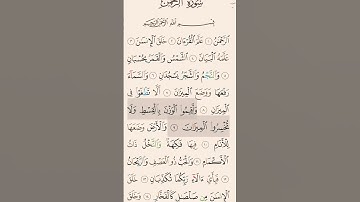 سُورَةُ الرَّحْمَٰنِ
بِسْمِ اللَّهِ الرَّحْمَٰنِ الرَّحِيمِ
ٱلرَّحْمَٰنُ ١ عَلَّمَ ٱلْقُرْءَانَ ٢ خَلَقَ ٱلْإِنسَٰنَ ٣
عَلَّمَهُ ٱلْبَيَانَ ٤ ٱلشَّمْسُ وَٱلْقَمَرُ بِحُسْبَانٍ
٥ وَٱلنَّجْمُ وَٱلشَّجَرُ يَسْجُدَانِ ٦ وَٱلسَّمَآءَ
رَفَعَهَا وَوَضَعَ ٱلْمِيزَانَ ٧ أَلَّا تَطْغَوْا۟ فِى
ٱلْمِيزَانِ ٨ وَأَقِيمُوا۟ ٱلْوَزْنَ بِٱلْقِسْطِ وَلَا
تُخْسِرُوا۟ ٱلْمِيزَانَ ٩ وَٱلْأَرْضَ وَضَعَهَا
لِلْأَنَامِ ١٠ فِيهَا فَٰكِهَةٌ وَٱلنَّخْلُ ذَاتُ
ٱلْأَكْمَامِ ١١ وَٱلْحَبُّ ذُو ٱلْعَصْفِ وَٱلرَّيْحَانُ
١٢ فَبِأَىِّ ءَالَآءِ رَبِّكُمَا تُكَذِّبَانِ ١٣ خَلَقَ
ٱلْإِنسَٰنَ مِن صَلْصَٰلٍ كَٱلْفَخَّارِ ١٤ وَخَلَقَ